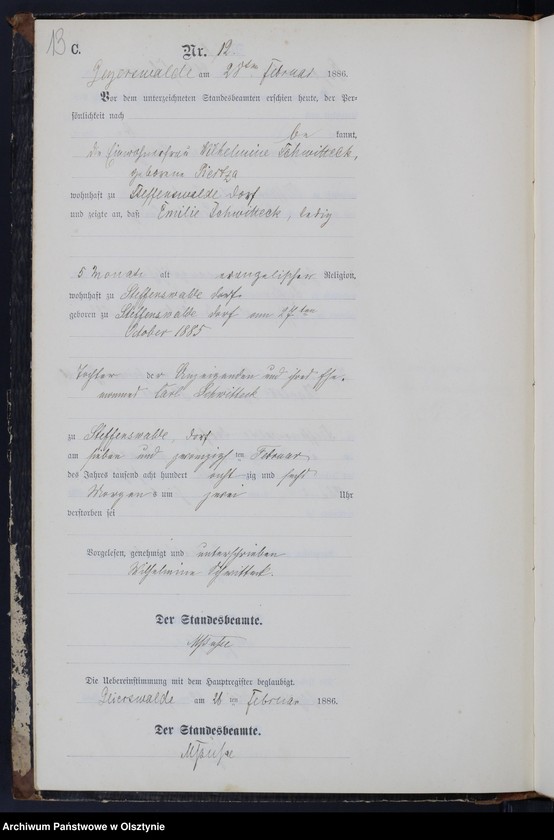 13 C.
Nr. 12.
Geyerswalde am 28ten Februar 1886.
Vor dem unterzeichneten Standesbeamten erschien heute, der Per-
sönlichkeit nach
be kannt,
die Einwohnerfrau Wilhelmine Schwitteck,
geborene
wohnhaft zu Steffenswalde Dorf
und zeigte an, daß Emilie Schwitteck, ledig
5 Monate alt evangelischer Religion,
wohnhaft zu Steffenswalde Dorf
geboren zu Steffenswalde Dorf am
October 1885
Tochter der Anzeigenden und ihres Ehe-
mannes Carl Schwitteck
zu Steffenswalde, Dorf
am sieben und zwanzigsten Februar
des Jahres tausend acht hundert acht zig und sechs
Morgens um zwei Uhr
verstorben sei
Vorgelesen, genehmigt und unterschrieben
Wilhelmine Schwitteck.
Der Standesbeamte.
Die Uebereinstimmung mit dem Hauptregister beglaubigt.
Geierswalde am 28 ten Februar 1886.
Der Standesbeamte.
Archiwum Państwowe w Olsztynie